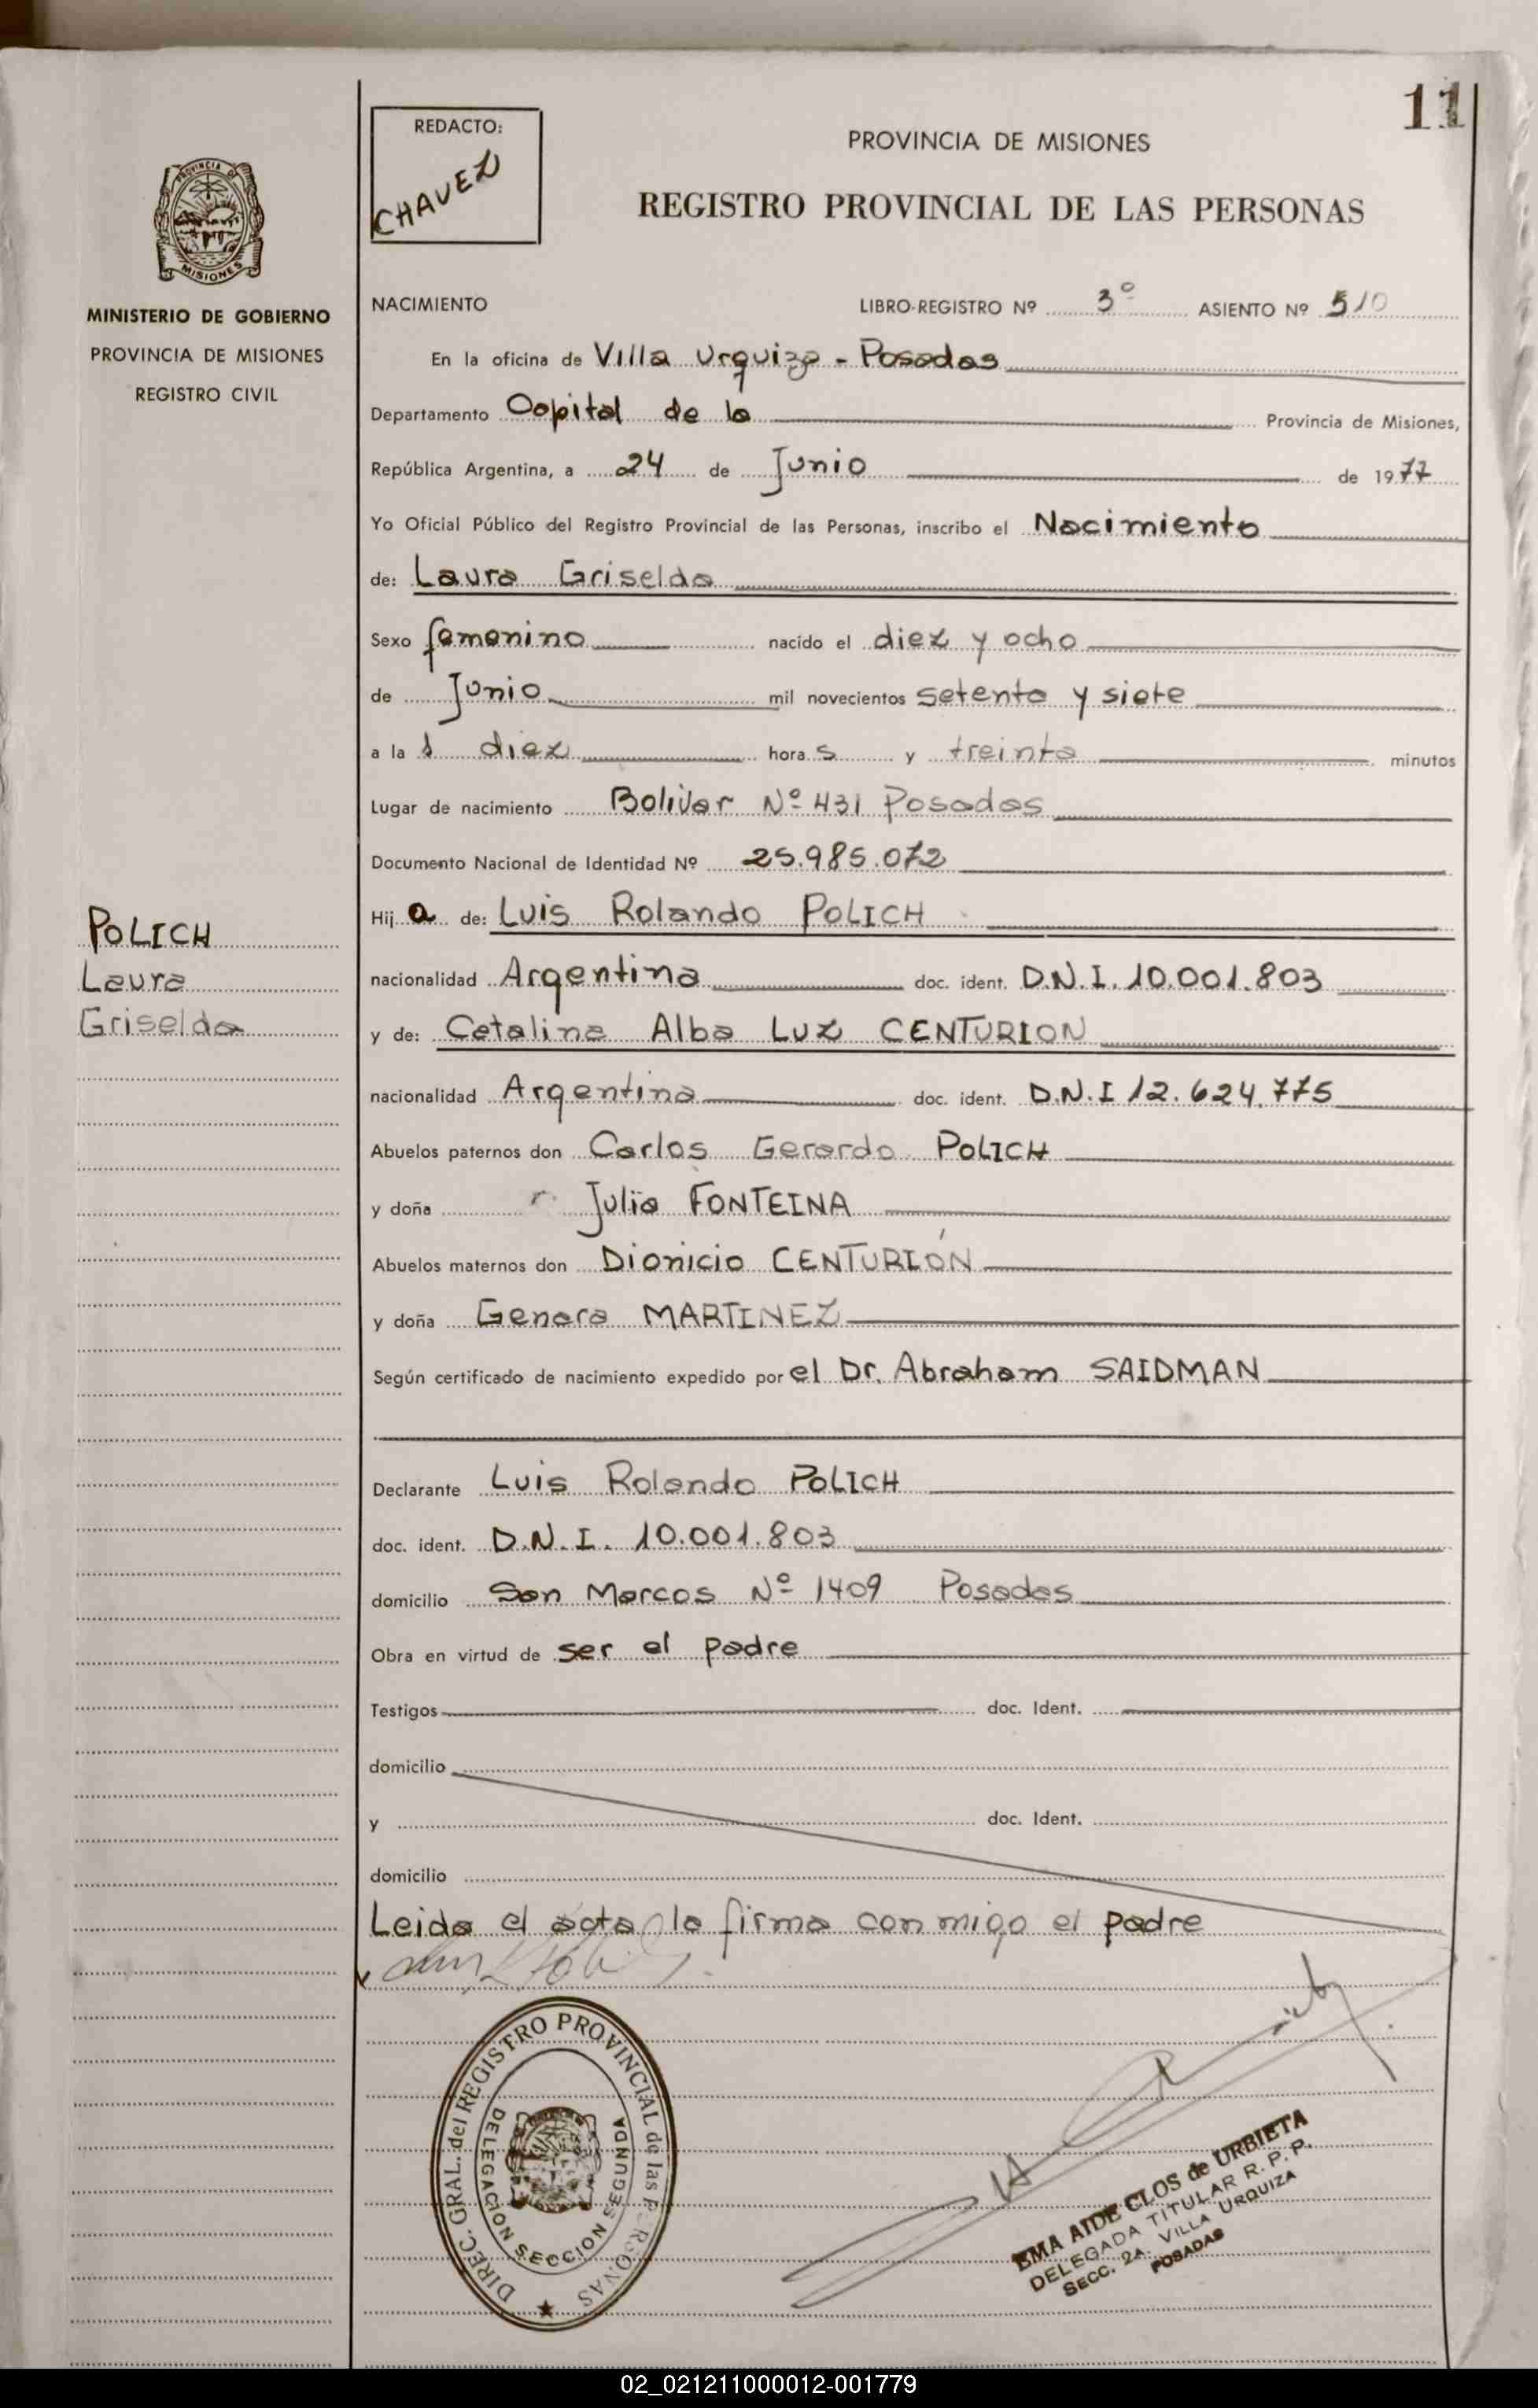 11
REDACTO:
CHAVEZ
PROVINCIA DE MISIONES
REGISTRO PROVINCIAL DE LAS PERSONAS
PROVINCIA DE
MISIONES
MINISTERIO DE GOBIERNO
PROVINCIA DE MISIONES
REGISTRO CIVIL
NACIMIENTO LIBRO-REGISTRO Nº 3º ASIENTO Nº 510
En la oficina de Villa Urquiza - Posadas
Departamento Capital de la Provincia de Misiones,
República Argentina, a 24 de Junio de 1977
Yo Oficial Público del Registro Provincial de las Personas, inscribo el Nacimiento
de: Laura Griselda
Sexo femenino nacido el diez y ocho
de Junio mil novecientos setenta y siete
a la s diez hora s y treinta minutos
Lugar de nacimiento Bolivar Nº 431 Posadas
Documento Nacional de Identidad Nº 25.985.072
Hij a de: Luis Rolando POLICH
POLICH
Laura
Griselda
nacionalidad Argentina doc. ident. D.N.I. 10.001.803
y de: Catalina Alba Luz CENTURION
nacionalidad Argentina doc. ident. D.N.I 12.624.775
Abuelos paternos don Carlos Gerardo POLICH
y doña Julia FONTEINA
Abuelos maternos don Dionicio CENTURIÓN
y doña Genara MARTINEZ
Según certificado de nacimiento expedido por el Dr. Abraham SAIDMAN
Declarante Luis Rolando POLICH
doc. ident. D.N.I. 10.001.803
domicilio San Marcos Nº 1409 Posadas
Obra en virtud de ser el padre
Testigos doc. Ident.
domicilio
y doc. Ident.
domicilio
Leida el acta la firma conmigo el padre
DIREC. GRAL. del REGISTRO PROVINCIAL de las PERSONAS
DELEGACION SECCION SEGUNDA
EMA AIDE CLOS de URBIETA
DELEGADA TITULAR R. P. P.
SECC. 2A. VILLA URQUIZA
POSADAS
02_021211000012-001779